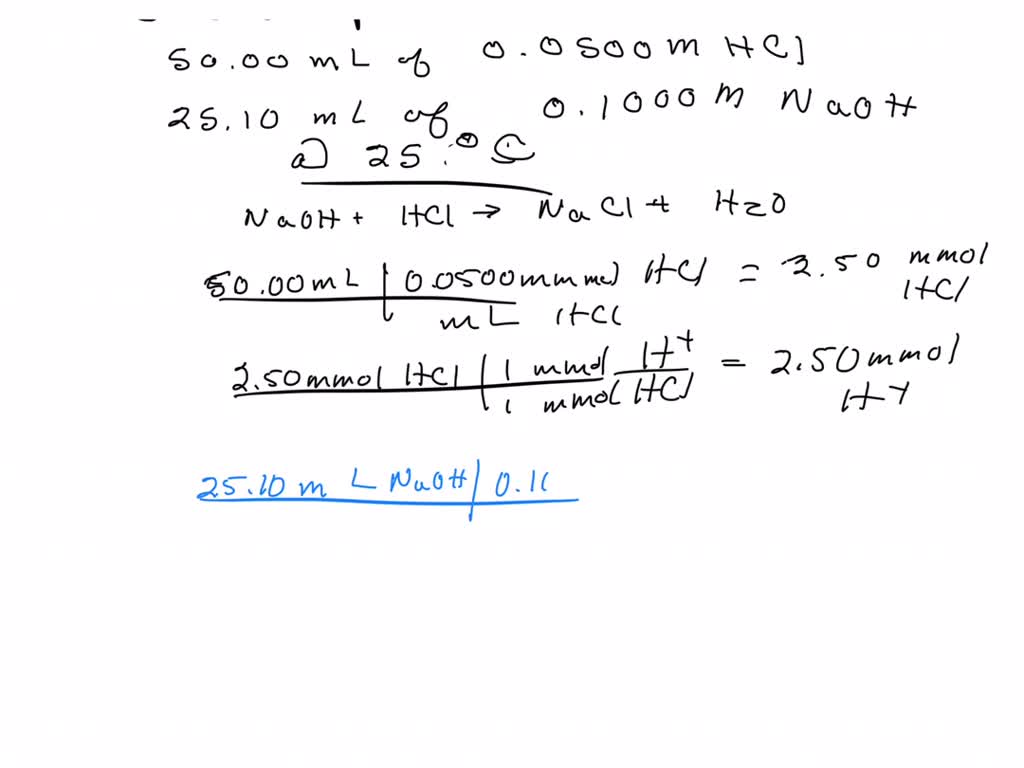 50.00 mL of 0.0500 m HCl
25.10 mL of 0.1000 M NaOH
a) 25.0°C
NaOH + HCl → NaCl + H2O
50.00 mL | 0.0500 mmmol HCl = 2.50 mmol HCl
mL HCl
2.50 mmol HCl | 1 mmol H+ = 2.50 mmol H+
1 mmol HCl
25.10 mL NaOH | 0.10